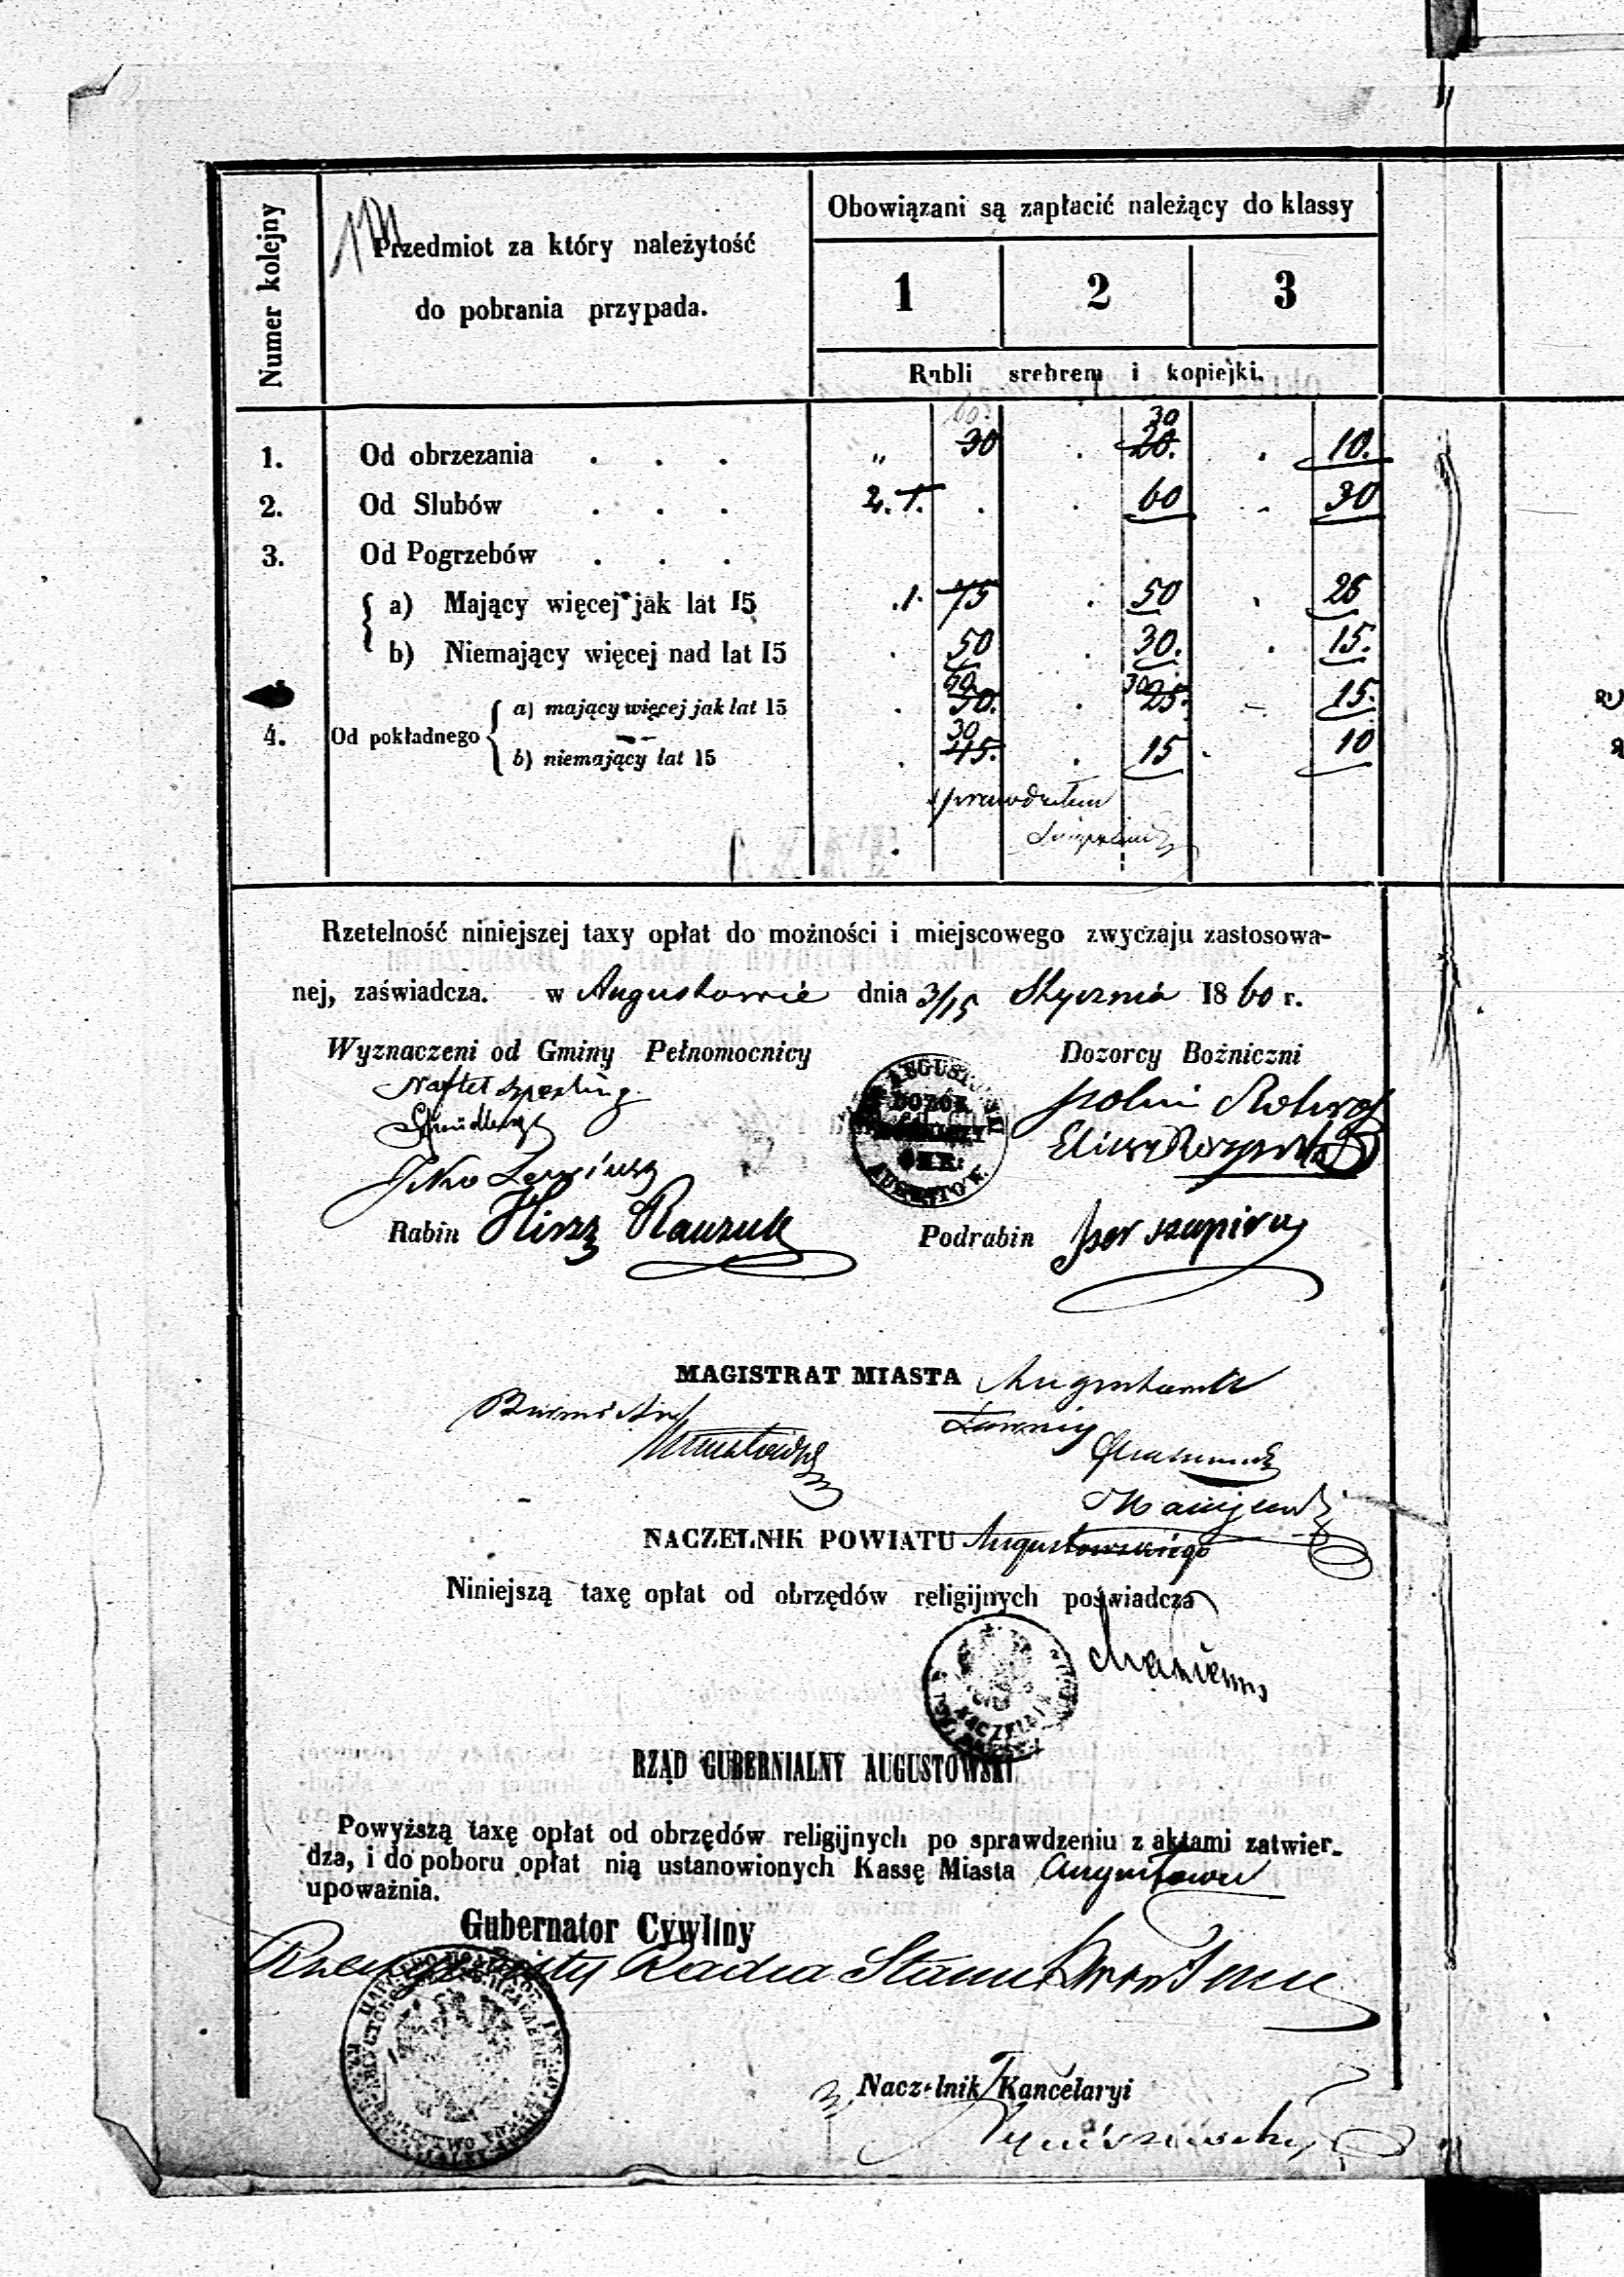 Numer kolejny
Przedmiot za który należytość
do pobrania przypada.
Obowiązani są zapłacić należący do klassy
1 2 3
Rubli srebrem i kopiejki.
1. Od obrzezania . . . „ 60. 30 . 30 20. . 10.
2. Od Slubów . . . 2. 1. . . 60 . 30
3. Od Pogrzebów . . .
a) Mający więcej jak lat 15 .1. 75 . 50 . 25
b) Niemający więcej nad lat 15 . 50 . 30. . 15.
4. Od pokładnego
a) mający więcej jak lat 15 . 60. 50. . 30 25. . 15.
b) niemający lat 15 . 30 45. . 15 . 10
sprawdziłem
Rzetelność niniejszej taxy opłat do możności i miejscowego zwyczaju zastosowa-
nej, zaświadcza. w Augustowie dnia 3/15 Stycznia 1860 r.
Wyznaczeni od Gminy Pełnomocnicy Dozorcy Bożniczni
AUGUSTOW
DOZÓR
OKR:
Rabin Hirsz Podrabin szapiru
MAGISTRAT MIASTA Augustowa
Burmistrz
Ławnicy
NACZELNIK POWIATU Augustowskiego
Niniejszą taxę opłat od obrzędów religijnych poświadcza
NACZELNIK
RZĄD GUBERNIALNY AUGUSTOWSKI
Powyższą taxę opłat od obrzędów religijnych po sprawdzeniu z aktami zatwier-
dza, i do poboru opłat nią ustanowionych Kassę Miasta Augustowa
upoważnia.
Gubernator Cywilny
Rzeczywisty Radca Stanu
Naczelnik Kancelaryi